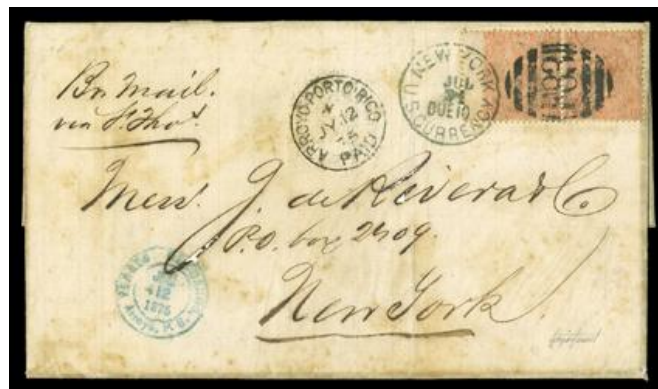 Br. Mail.
via St. Thos.
ARROYO-PORTO RICO
JY 12
PAID
NEW YORK
JUL
DUE 10
U.S. CURRENCY
Mess. J. de Rivera & Co
P.O. box 2509.
New York
JUL
12
1875
Arroyo, P.R.